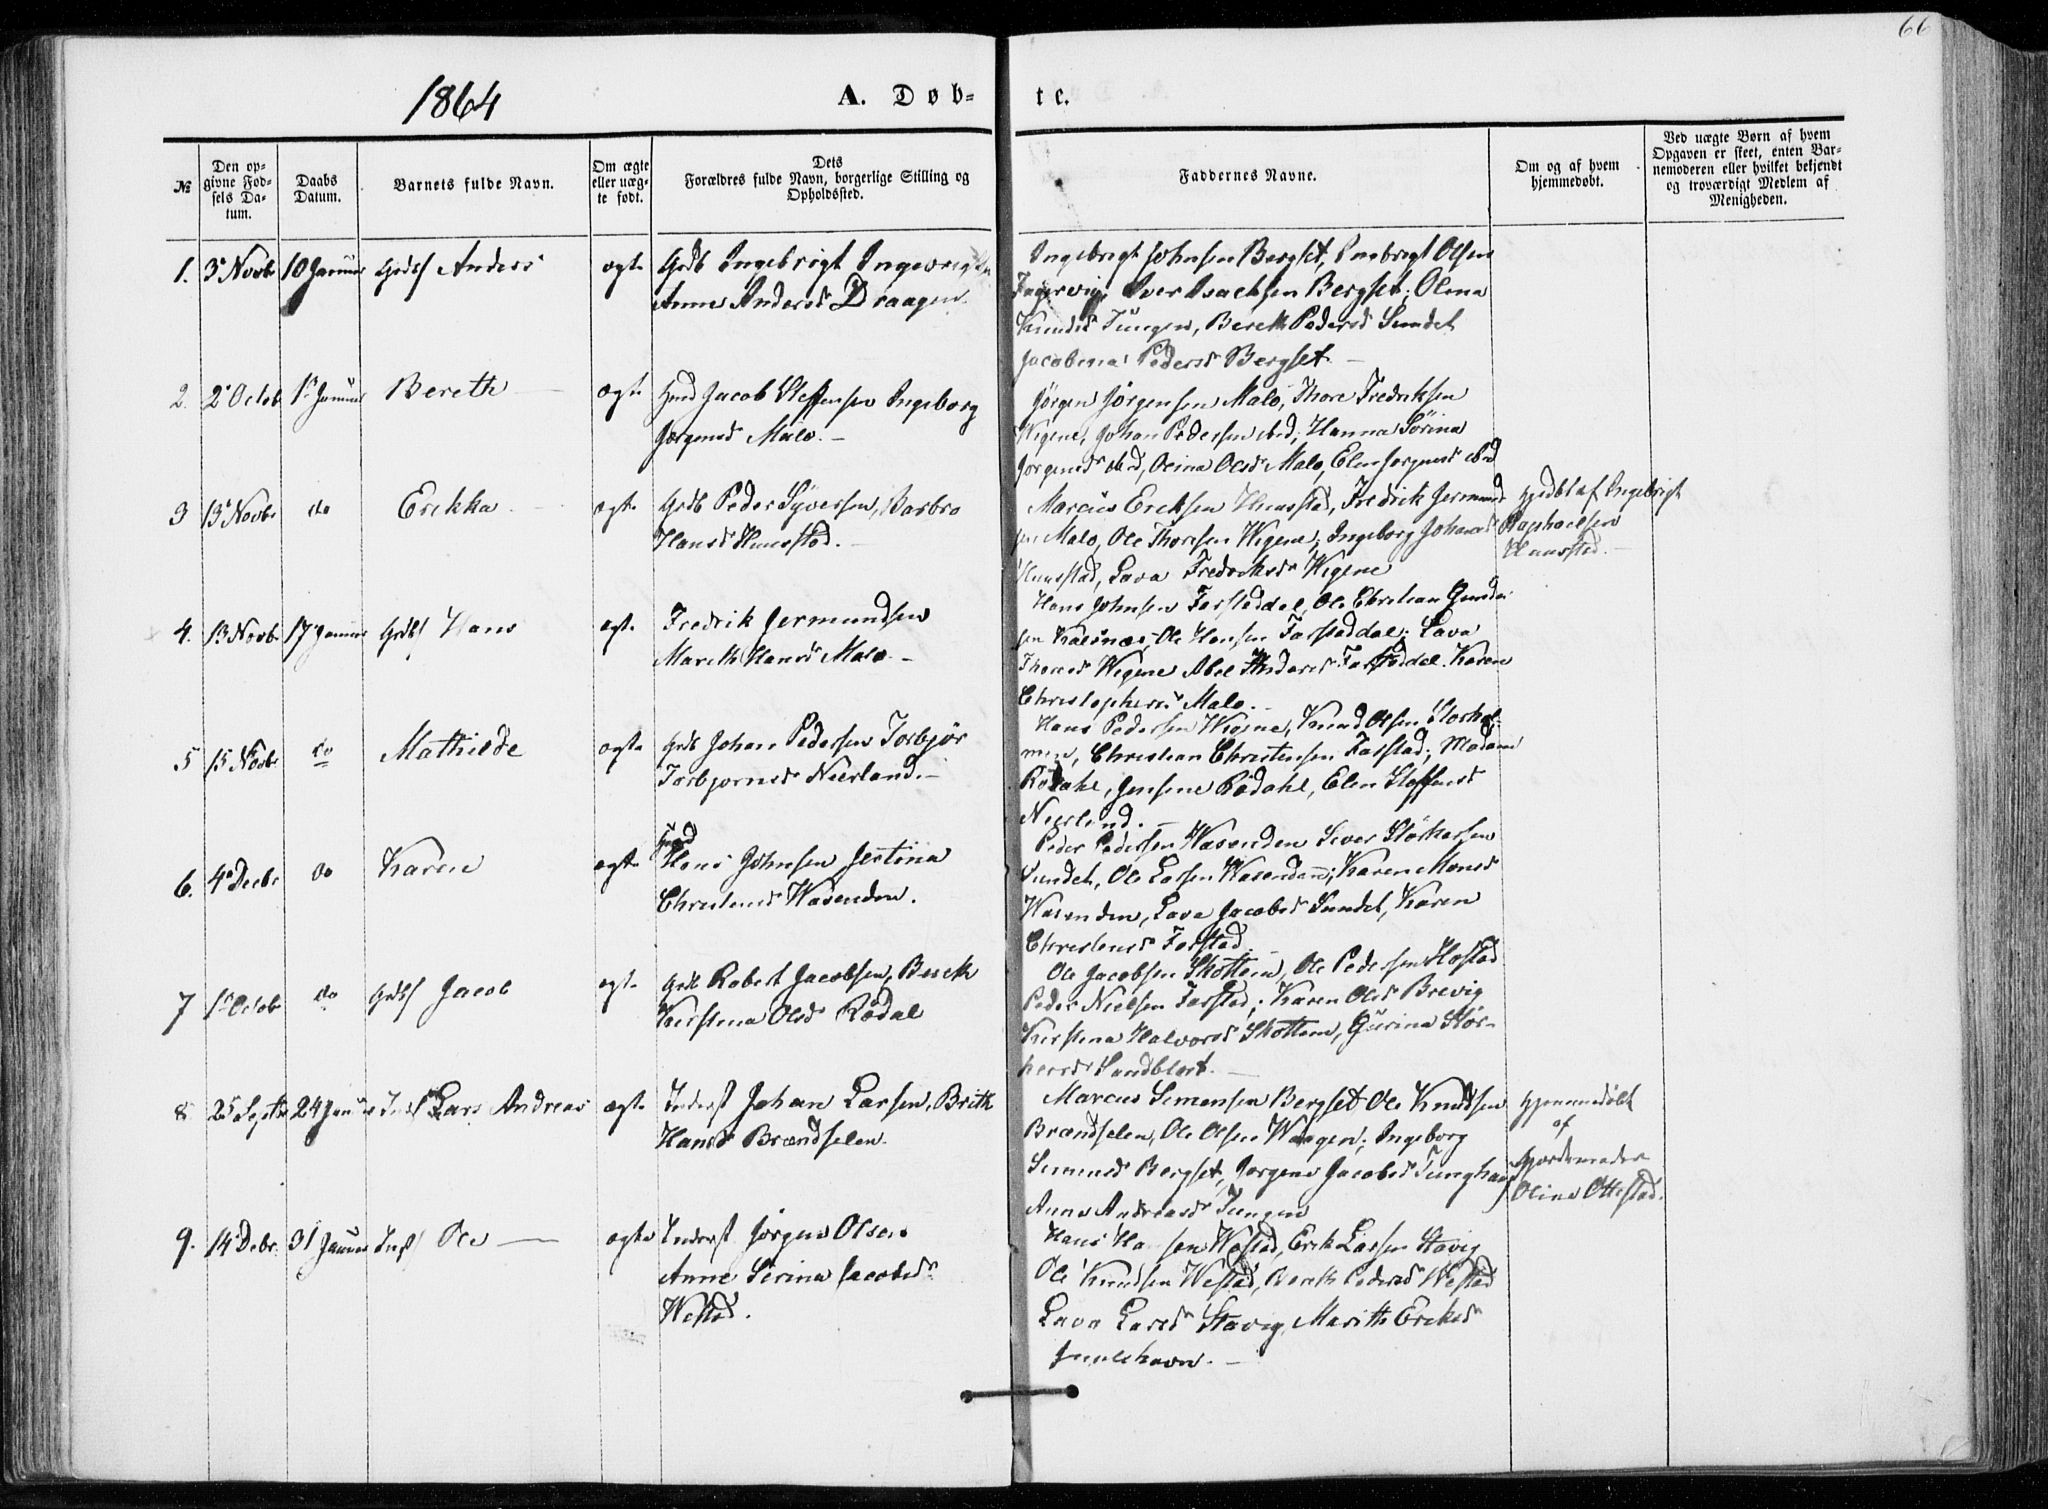 66
1864
A. Døb-
te.
№
Den op-
givne Fød-
sels Da-
tum.
Daabs
Datum.
Barnets fulde Navn.
Om ægte
eller uæg-
te født.
Dets
Forældres fulde Navn, borgerlige Stilling og
Opholdssted.
Faddernes Navne.
Om og af hvem
hjemmedøbt.
Ved uægte Børn af hvem
Opgaven er skeet, enten Bar-
nemoderen eller hvilket bekjendt
og troværdigt Medlem af
Menigheden.
1. 3 Novbr 10 Januar Anders ægte Grdb Ingebrigt
Anne Andersd Draagen
Ingebrigt Johnsen Bergset, Olsen
Iver Isachsen Bergset; Olina
Knudsd Tungen, Bereth Pedersd Sundet
Jacobina Pedersd Bergset. —
2. 2 Octob 1 Januar Bereth — ægte Hmd Jacob Steffensen Ingeborg
Jørgensd Malo. —
Jørgen Jørgensen Malo, Thore Fredriksen
Wigene, Johan Pedersen ibid; Hanna Sørina
Jørgensd ibid, Olina Olsd Malo, Elen Jørgensd ibid
3 13 Novbr do Erikka — ægte Grdb Peder Syversen, Barbro
Hansd Hunstad. —
Marcus Ericksen Hunstad, Fredrik Jermund
sen Malo, Ole Thoresen Wigene; Ingeborg Johansd
Hunstad, Lava Fredriksd Wigene
Hjdbt af Ingebrigt
Raphaelsen
Hunstad. —
4. 13 Novbr 17 Januar Hans ægte Fredrik Jermundsen
Mareth Hansd Malo —
Hans Johnsen Farstaddal, Ole Christian Gunder
sen Ole Hansen Farstaddal; Lava
Thoresd Wigene Abel Andersd Farstaddal. Karen
Christophersd Malo. —
5 15 Novbr do Mathilde ægte Grdb Johan Pedersen Torbjør
Torbjørnsd Neerland. —
Hans Pedersen Wigene, Knud Olsen Storhol
men, Christian Christensen Farstad; Madame
Rødahl, Jensine Rødahl, Elen Steffensd
Neerland. —
6. 4 Decbr do Karen ægte Hmd
Hans Johnsen Jestina
Christensd Wasenden.
Peder Pedersen Wasenden Siver Størkersen
Sundet, Ole Larsen Wasenden; Karen Monsd
Wasenden, Lava Jacobsd Sundet, Karen
Christensd Farstad. —
7 1 Octob do Jacob ægte Grdb Robert Jacobsen, Bereth
Kirstina Olsd Rødal
Ole Jacobsen Skottem, Ole Pedersen Hostad
Peder Nielsen Farstad; Karen Olsd Brevig
Kirstina Halvorsd Skottem, Gurina Stør-
kersd Sandblost. —
8 25 Septbr 24 Januar Lars Andreas ægte Inderst Johan Larsen, Brith
Hansd Brandselen.
Marcus Simonsen Bergset Ole Knudsen
Brandselen, Ole Olsen Waagen; Ingeborg
Simonsd Bergset, Jørgine Jacobsd Tunghaug
Anne Andreasd Tungen
Hjemmedøbt
af
Gjordemoder
Oline Ottestad.
9. 14 Debr. 31 Januar Ole — ægte Inderst Jørgen Olsen
Anne Serina Jacobsd
Westad.
Hans Hansen Westad, Erik Larsen Stavig
Ole Knudsen Westad, Bereth Pedersd Westad
Lava Larsd Stavig, Marith Eriksd
Julshavn. —